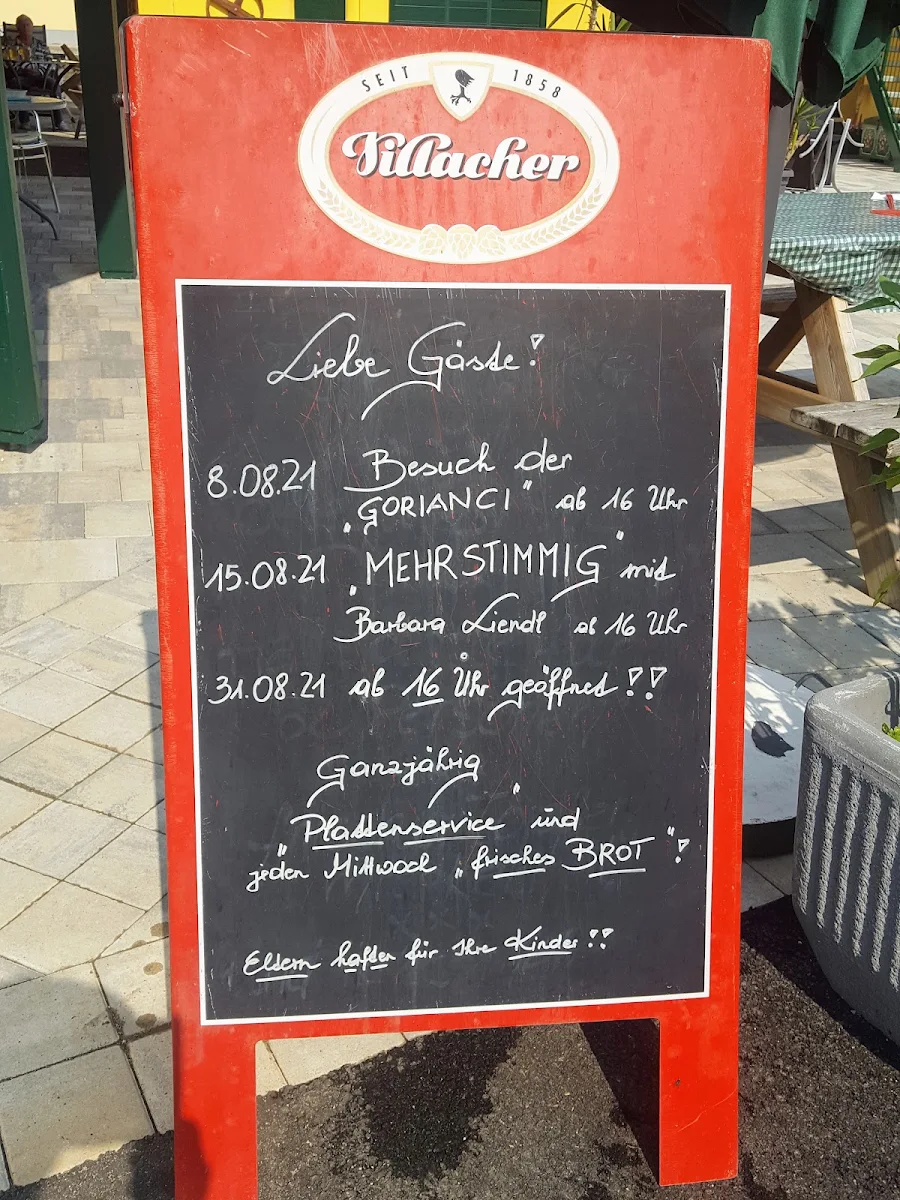 SEIT 1858
Villacher
Liebe Gäste!
8.08.21 Besuch der
„GORIANCI" ab 16 Uhr
15.08.21 „MEHRSTIMMIG" mit
Barbara Liendl ab 16 Uhr
31.08.21 ab 16 Uhr geöffnet!!
Ganzjährig
„Plattenservice" und
jeden Mittwoch „frisches BROT"!
Eltern haften für Ihre Kinder!!